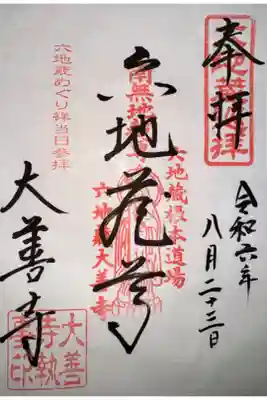 奉拝
令和六年
八月二十三日
六地蔵尊
六地蔵根本道場
六地蔵大善寺
六地蔵めぐり結当日参拝
大善寺
大善
寺執
事印